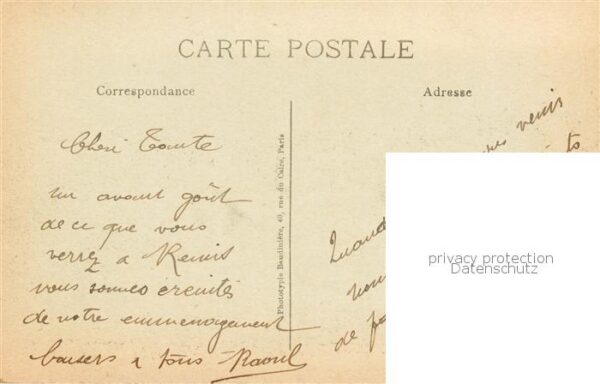 CARTE POSTALE
Correspondance
Adresse
Cheri Tante
un avant goût
de ce que vous
verrez a Reims
vous sommes ereintés
de notre emmenagement
baisers a tous Raoul
Phototypie Baudinière, 40, rue du Caire, Paris
venir
Quand
de
privacy protection
Datenschutz